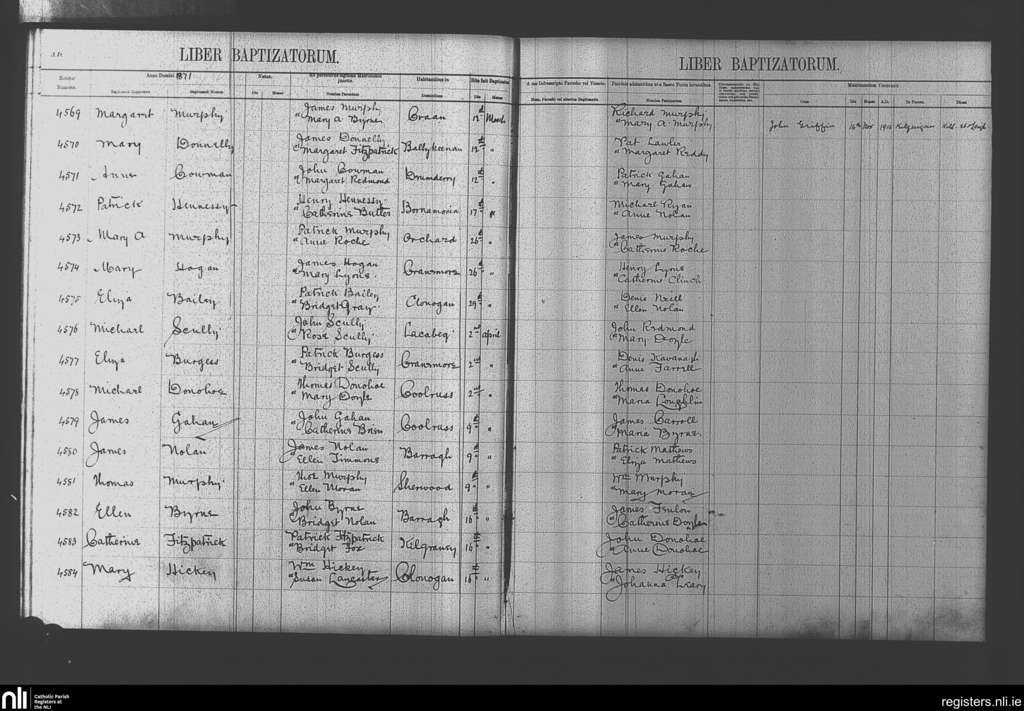 LIBER BAPTIZATORUM.
LIBER BAPTIZATORUM.
Anno Domini 1871
Natus.
Habitantibus in
Dic fuit Baptizatus
Matrimonium Contraxit
4569 Margaret Murphy James Murphy & Mary A Byrne Craan 12th March Richard Murphy & Mary A Murphy John Griffin 16th Nov 1910
4570 Mary Donnally James Donnally & Margaret Fitzpatrick Ballykeenan 12th " Pat Lawler & Margaret Reddy
4571 Anne Cowman John Cowman & Margaret Redmond Drumderry 12th " Patrick Gahan & Mary Gahan
4572 Patrick Hennessy Henry Hennessy & Catherine Butler Bornamoria 17th " Michael Ryan & Anne Nolan
4573 Mary A Murphy Patrick Murphy & Anne Roche Orchard 26th " James Murphy & Catherine Roche
4574 Mary Hogan James Hogan & Mary Lyons Cranemore 26th " Henry Lyons & Catherine Clinch
4575 Eliza Bailey Patrick Bailey & Bridget Gray Clonogan 29th " Denis Neill & Ellen Nolan
4576 Michael Scully John Scully & Rose Scully Lacabeg 2nd April John Redmond & Mary Doyle
4577 Eliza Burgess Patrick Burgess & Bridget Scully Cranemore 2nd " Denis Kavanagh & Anne Farrell
4578 Michael Donohoe Thomas Donohoe & Mary Doyle Coolrass 2nd " Thomas Donohoe & Maria Loughlin
4579 James Gahan John Gahan & Catherine Brien Coolrass 9th " James Carroll & Maria Byrne
4580 James Nolan James Nolan & Ellen Timmons Barragh 9th " Patrick Mathews & Eliza Mathews
4581 Thomas Murphy Thos Murphy & Ellen Moran Sherwood 9th " Wm Murphy & Mary Moran
4582 Ellen Byrne John Byrne & Bridget Nolan Barragh 16th " James Fenlon & Catherine Doyle
4583 Catherine Fitzpatrick Patrick Fitzpatrick & Bridget Fox Kilgraney 16th " John Donohoe & Anne Donohoe
4584 Mary Hickey Wm Hickey & Susan Lancaster Clonogan 16th " James Hickey & Johanna Leary
nli
Catholic Parish
Registers at
the NLI
registers.nli.ie